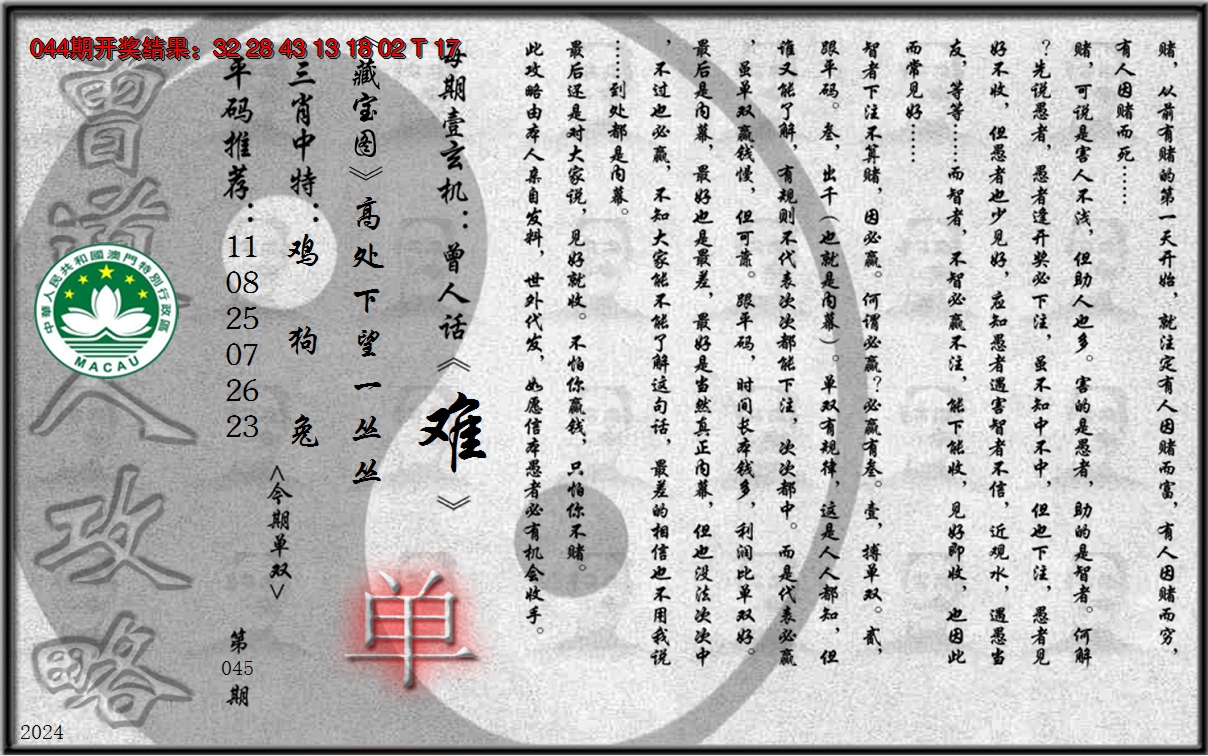 044期开奖结果：32 28 43 13 18 02 T 17
赌，从前有赌的第一天开始，就注定有人因赌而富，有人因赌而穷，
有人因赌而死……
赌，可说是害人不浅，但助人也多。害的是愚者，助的是智者。何解
？先说愚者，愚者逢开奖必下注，虽不知中不中，但也下注，愚者见
好不收，但愚者也少见好，应知愚者遇害智者不信，近观水，遇愚当
友，等等……而智者，不智必赢不注，能下能收，见好即收，也因此
而常见好……
智者下注不算赌，因必赢。何谓必赢？必赢有叁。壹，搏单双。贰，
跟平码。叁，出千（也就是内幕）。单双有规律，这是人人都知，但
谁又能了解，有规则不代表次次都能下注，次次都中。而是代表必赢
，虽单双赢钱慢，但可靠。跟平码，时间长本钱多，利润比单双好。
最后是内幕，最好也是最差，最好是当然真正内幕，但也没法次次中
，不过也必赢，不知大家能不能了解这句话，最差的相信也不用我说
……到处都是内幕。
最后还是对大家说，见好就收。不怕你赢钱，只怕你不赌。
此攻略由本人亲自发料，世外代发，如愿信本愚者必有机会收手。
每期壹玄机：曾人话《难》
《藏宝图》高处下望一丛丛
单
三肖中特：鸡 狗 兔
<今期单双>
平码推荐：11 08 25 07 26 23
第045期
曾道人攻略
中華人民共和國澳門特別行政區
MACAU
2024